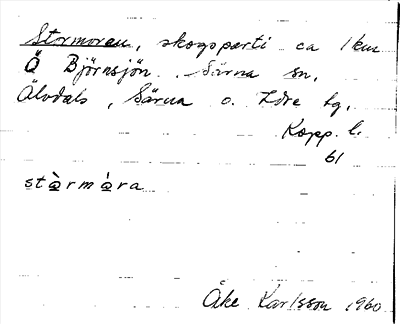 Stormoren, skogsparti ca 1 km
Ö Björnsjön. Särna sn,
Älvdals, Särna o. Idre tg.
Kopp. l.
61
stò̱rmò̱ra
Åke Karlsson 1960